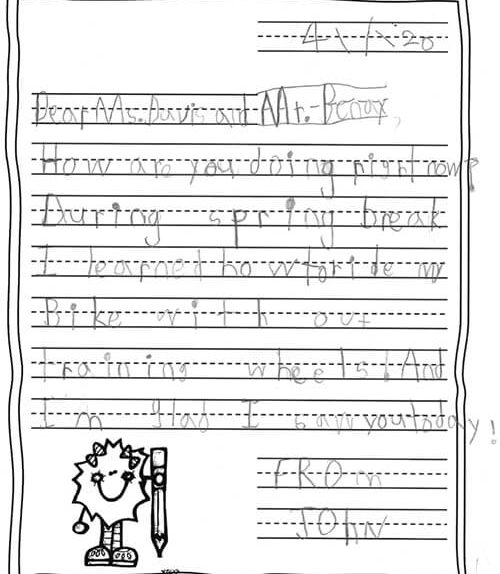 4\1\20
Dear Ms. Davis and Mr. Benax,
How are you doing right now?
During spring break
I learned how to ride my
Bike with out
training wheels! And
I'm glad I saw you today!
FROm
JOhN